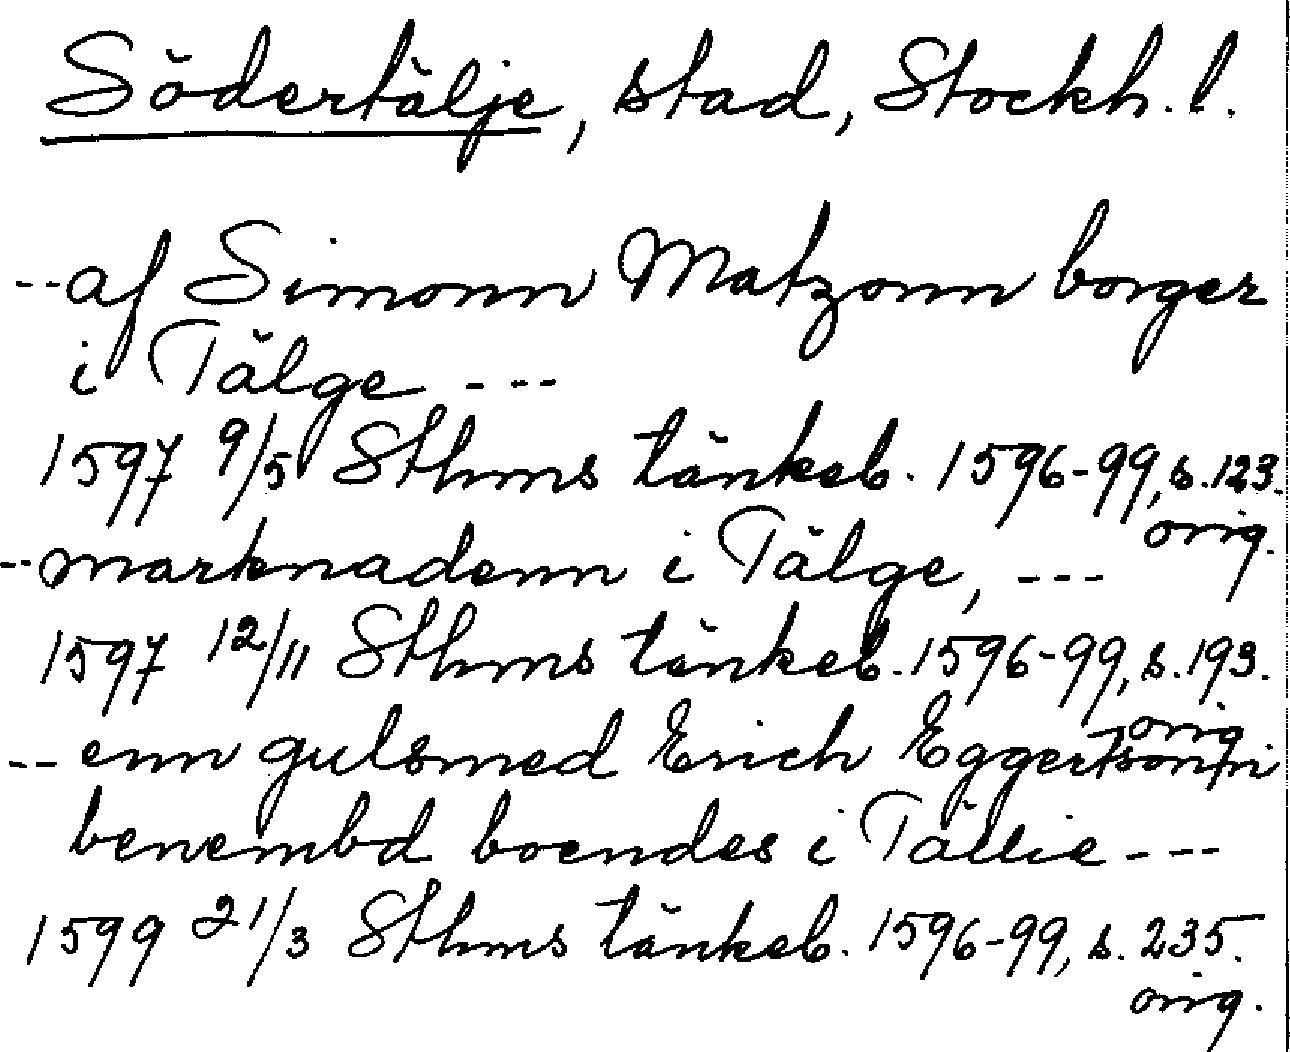 Södertälje, stad, Stockh. l.
-- af Simonn Matzonn borger
i Tälge ---
1597 9/5 Sthms tänkeb. 1596-99, s. 123.
orig.
-- marknadenn i Tälge, ---
1597 12/11 Sthms tänkeb. 1596-99, s. 193.
orig
-- enn gulsmed Erich Eggertsonn i
benembd boendes i Tällie ---
1599 21/3 Sthms tänkeb. 1596-99, s. 235.
orig.